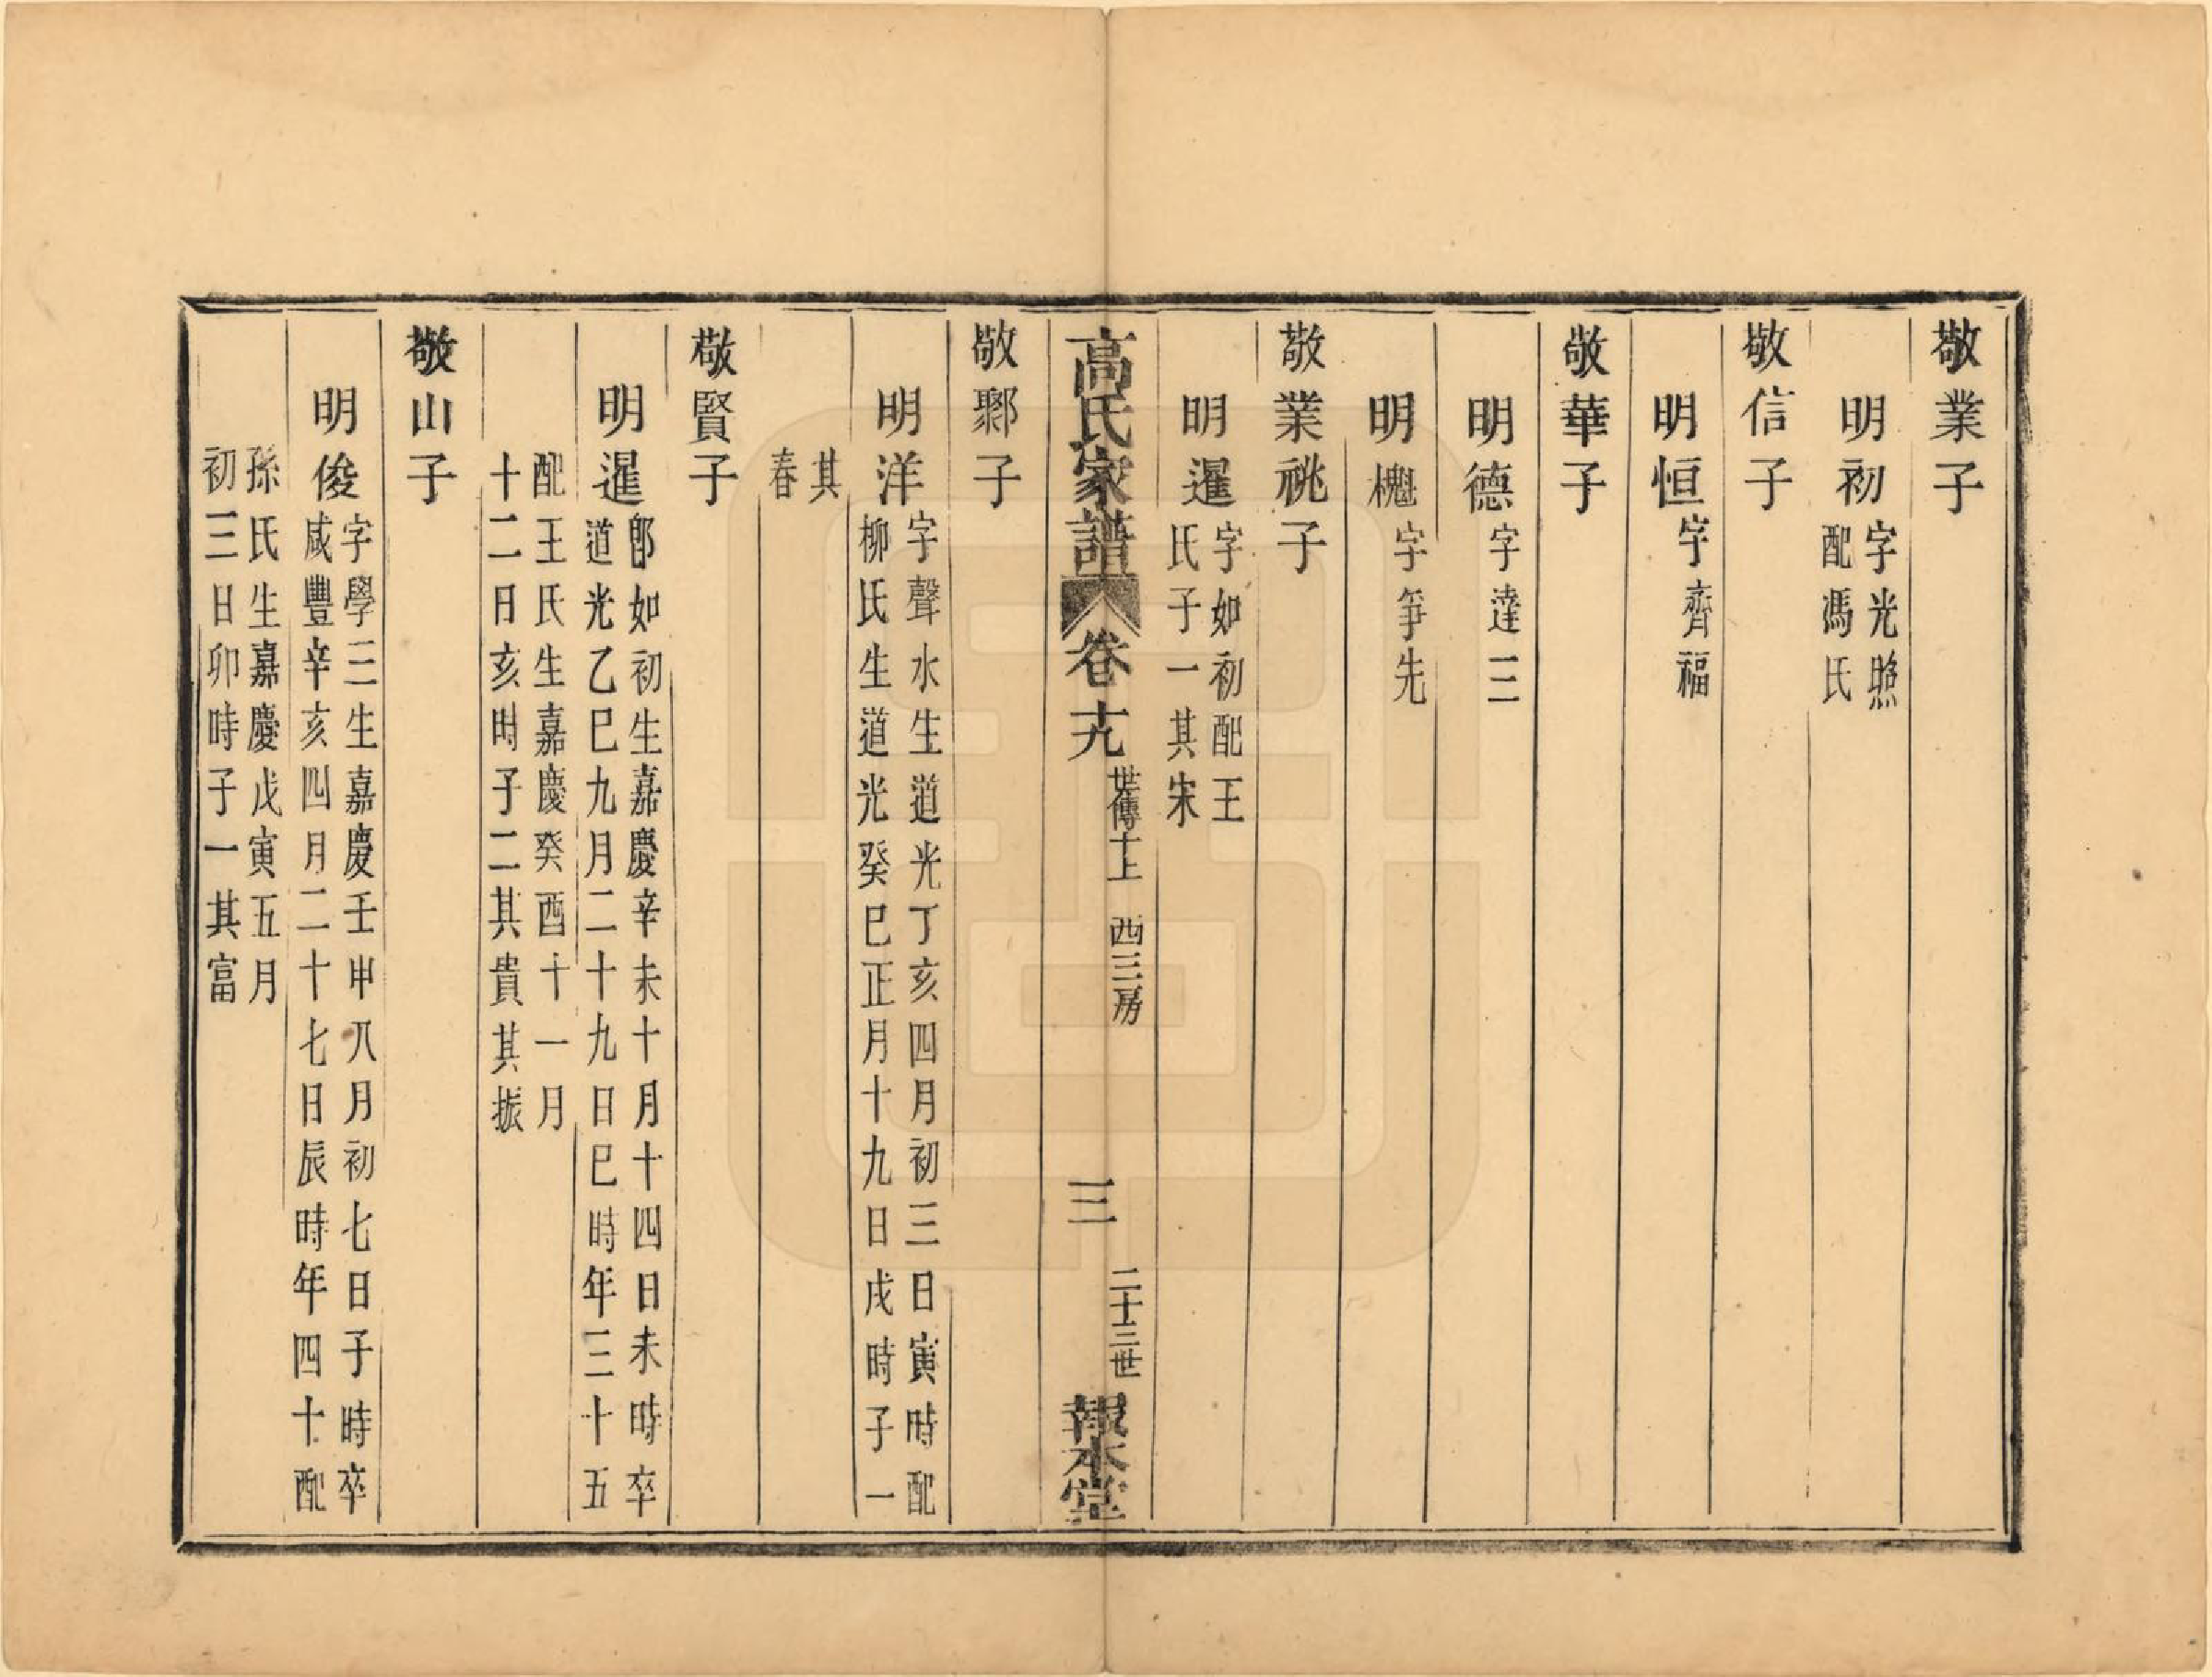 敬業子
明初字光照
配馮氏
敬信子
明恒字齊福
敬華子
明德字達三
明槐字爭先
敬業祧子
明暹字如初配王
氏子一其宋
高氏家譜
卷十九
世傳十上 西三房
三
二十三世
報本堂
敬鄹子
明洋字聲水生道光丁亥四月初三日寅時配
柳氏生道光癸巳正月十九日戌時子一
其
春
敬賢子
明暹郎如初生嘉慶辛未十月十四日未時卒
道光乙巳九月二十九日巳時年三十五
配王氏生嘉慶癸酉十一月
十二日亥時子二其貴其振
敬山子
明俊字學三生嘉慶壬申八月初七日子時卒
咸豐辛亥四月二十七日辰時年四十配
孫氏生嘉慶戊寅五月
初三日卯時子一其富